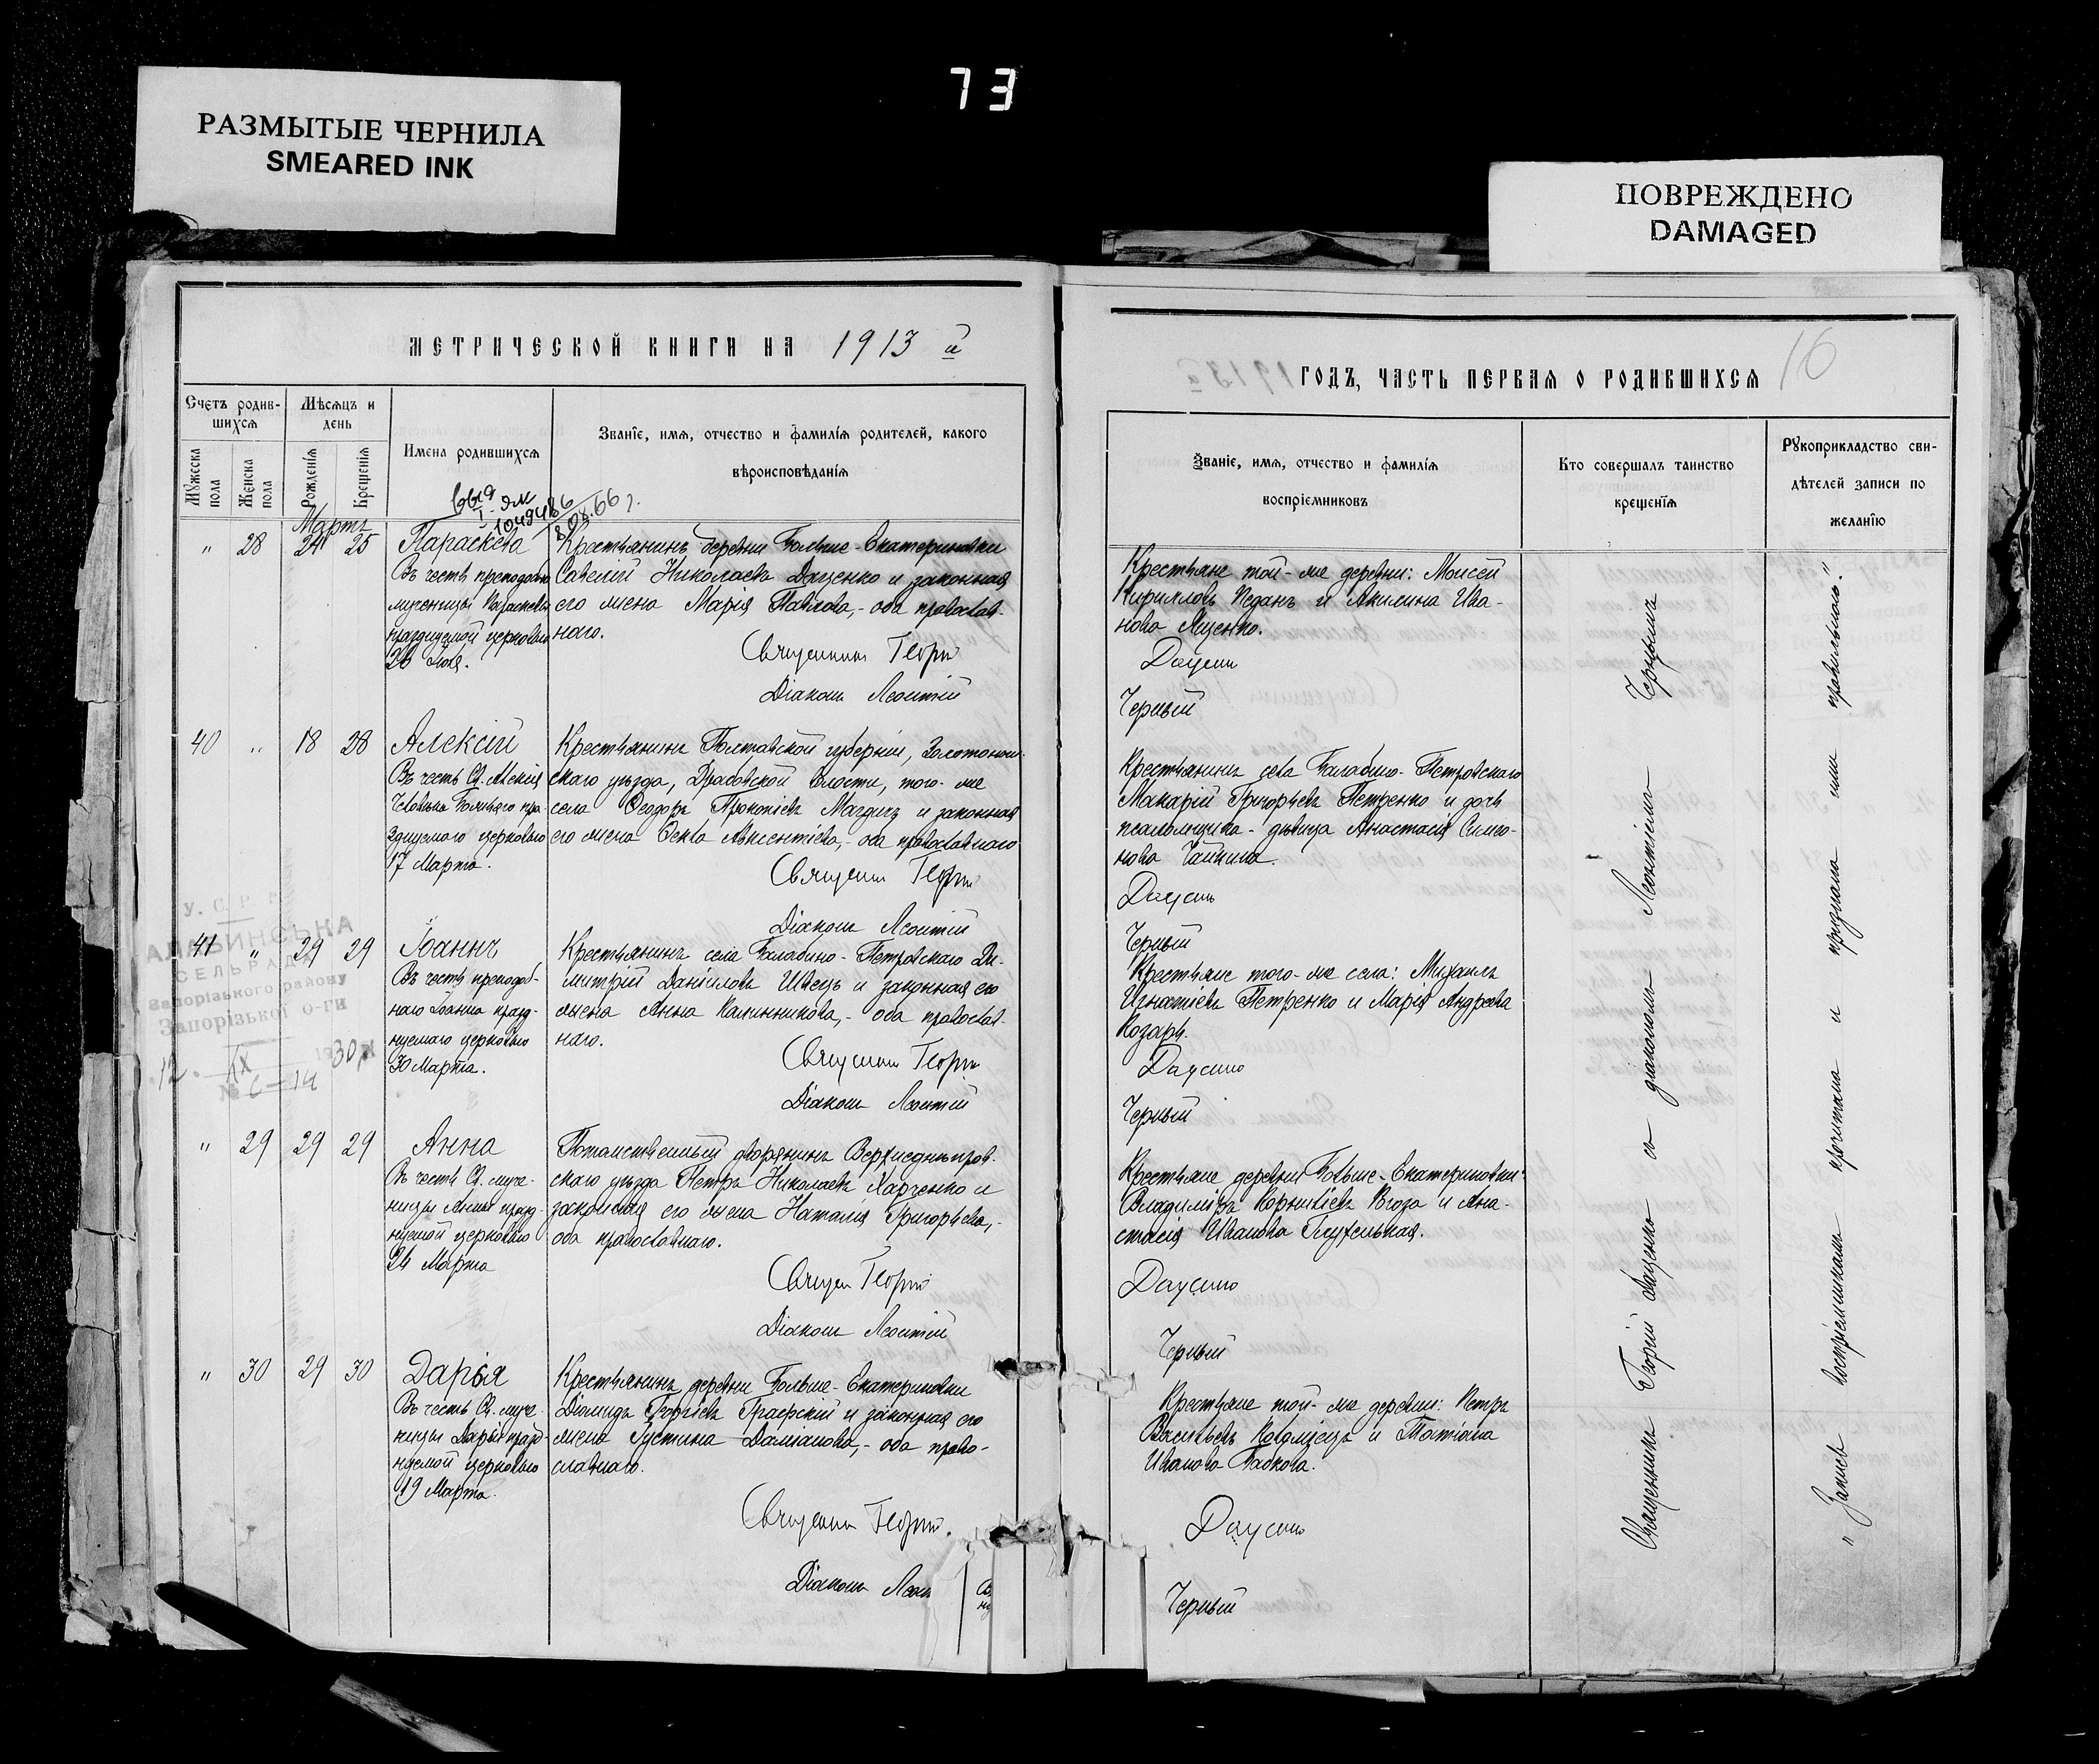 73
РАЗМЫТЫЕ ЧЕРНИЛА
SMEARED INK
ПОВРЕЖДЕНО
DAMAGED
МЕТРИЧЕСКОЙ КНИГИ НА 1913 й
Счетъ родив-
шихся
Мѣсяцъ и
день
Мужеска
пола
Женска
пола
Рожденія
Крещенія
Имена родившихся
Званіе, имя, отчество и фамилія родителей, какого
вѣроисповѣданія
Мартъ
" 28 24 25 Параскева
Въ честь преподобно
мученицы Параскевы
празднуемой церковью
26 Іюля.
Крестьянинъ деревни Больше-Екатериновки
Савелій Николаевъ Даценко и законная
его жена Марія Павлова,- оба православ-
наго.
Священникъ Георгій
Діаконъ Леонтій
40 " 18 28 Алексій
Въ честь Св. Алексія
Человѣка Божьяго пра-
зднуемаго церковью
17 Марта.
Крестьянинъ Полтавской губерніи, Золотонош-
скаго уѣзда, Драбовской волости, того-же
села Ѳеодоръ Прокопіевъ Магдичъ и законная
его жена Ѳекла Авксентіева,- оба православнаго
Священ Георгій
Діаконъ Леонтій
У. С. Р. Р.
СЕЛЬРАДА
Запорізького району
Запорізької о-ги
41 " 29 29 Іоаннъ
Въ честь преподоб-
наго Іоанна празд-
нуемаго церковью
30 Марта.
Крестьянинъ села Балабино-Петровскаго Ди-
митрій Даніиловъ Швецъ и законная его
жена Анна Калинникова,- оба православ-
наго.
Священ Георгій
Діаконъ Леонтій
" 29 29 29 Анна
Въ честь Св. муче-
ницы Анны празд-
нуемой церковью
24 Марта
Потомственный дворянинъ Верхнеднѣпров-
скаго уѣзда Петръ Николаевъ Харченко и
законная его жена Наталія Григорьева,-
оба православнаго.
Священ Георгій
Діаконъ Леонтій
" 30 29 30 Дарія
Въ честь Св. муче-
ницы Даріи празд-
нуемой церковью
19 Марта.
Крестьянинъ деревни Больше-Екатериновки
Діомидъ Георгіевъ Граерскій и законная его
жена Іустина Даміанова,- оба право-
славнаго.
Священ Георгій.
Діаконъ Леон
16
ГОДЪ, ЧАСТЬ ПЕРВАЯ О РОДИВШИХСЯ
Званіе, имя, отчество и фамилія
воспріемниковъ
Кто совершалъ таинство
крещенія
Рукоприкладство сви-
дѣтелей записи по
желанію
Крестьяне той-же деревни: Моисей
Кирилловъ Педанъ и Акилина Ива-
нова Яценко.
Даценко
Черный
Крестьянинъ села Балабино-Петровскаго
Макарій Григорьевъ Петренко и дочь
псаломщика-дѣвица Анастасія Симео-
нова Чайкина.
Даценко
Черный
Крестьяне того-же села: Михаилъ
Игнатіевъ Петренко и Марія Андреева
Козарь.
Даценко
Черный
Крестьяне деревни Больше-Екатериновки:
Владиміръ Корниліевъ Коза и Ана-
стасія Иванова Глухенькая.
Даценко
Черный
Крестьяне той-же деревни: Петръ
Васильевъ Коломіецъ и Татіана
Иванова Бабкова.
Даценко
Черный
Священникъ Георгій Даценко съ діакономъ Леонтіемъ Чернымъ
"Запись воспріемникамъ прочитана и признана ими правильною."